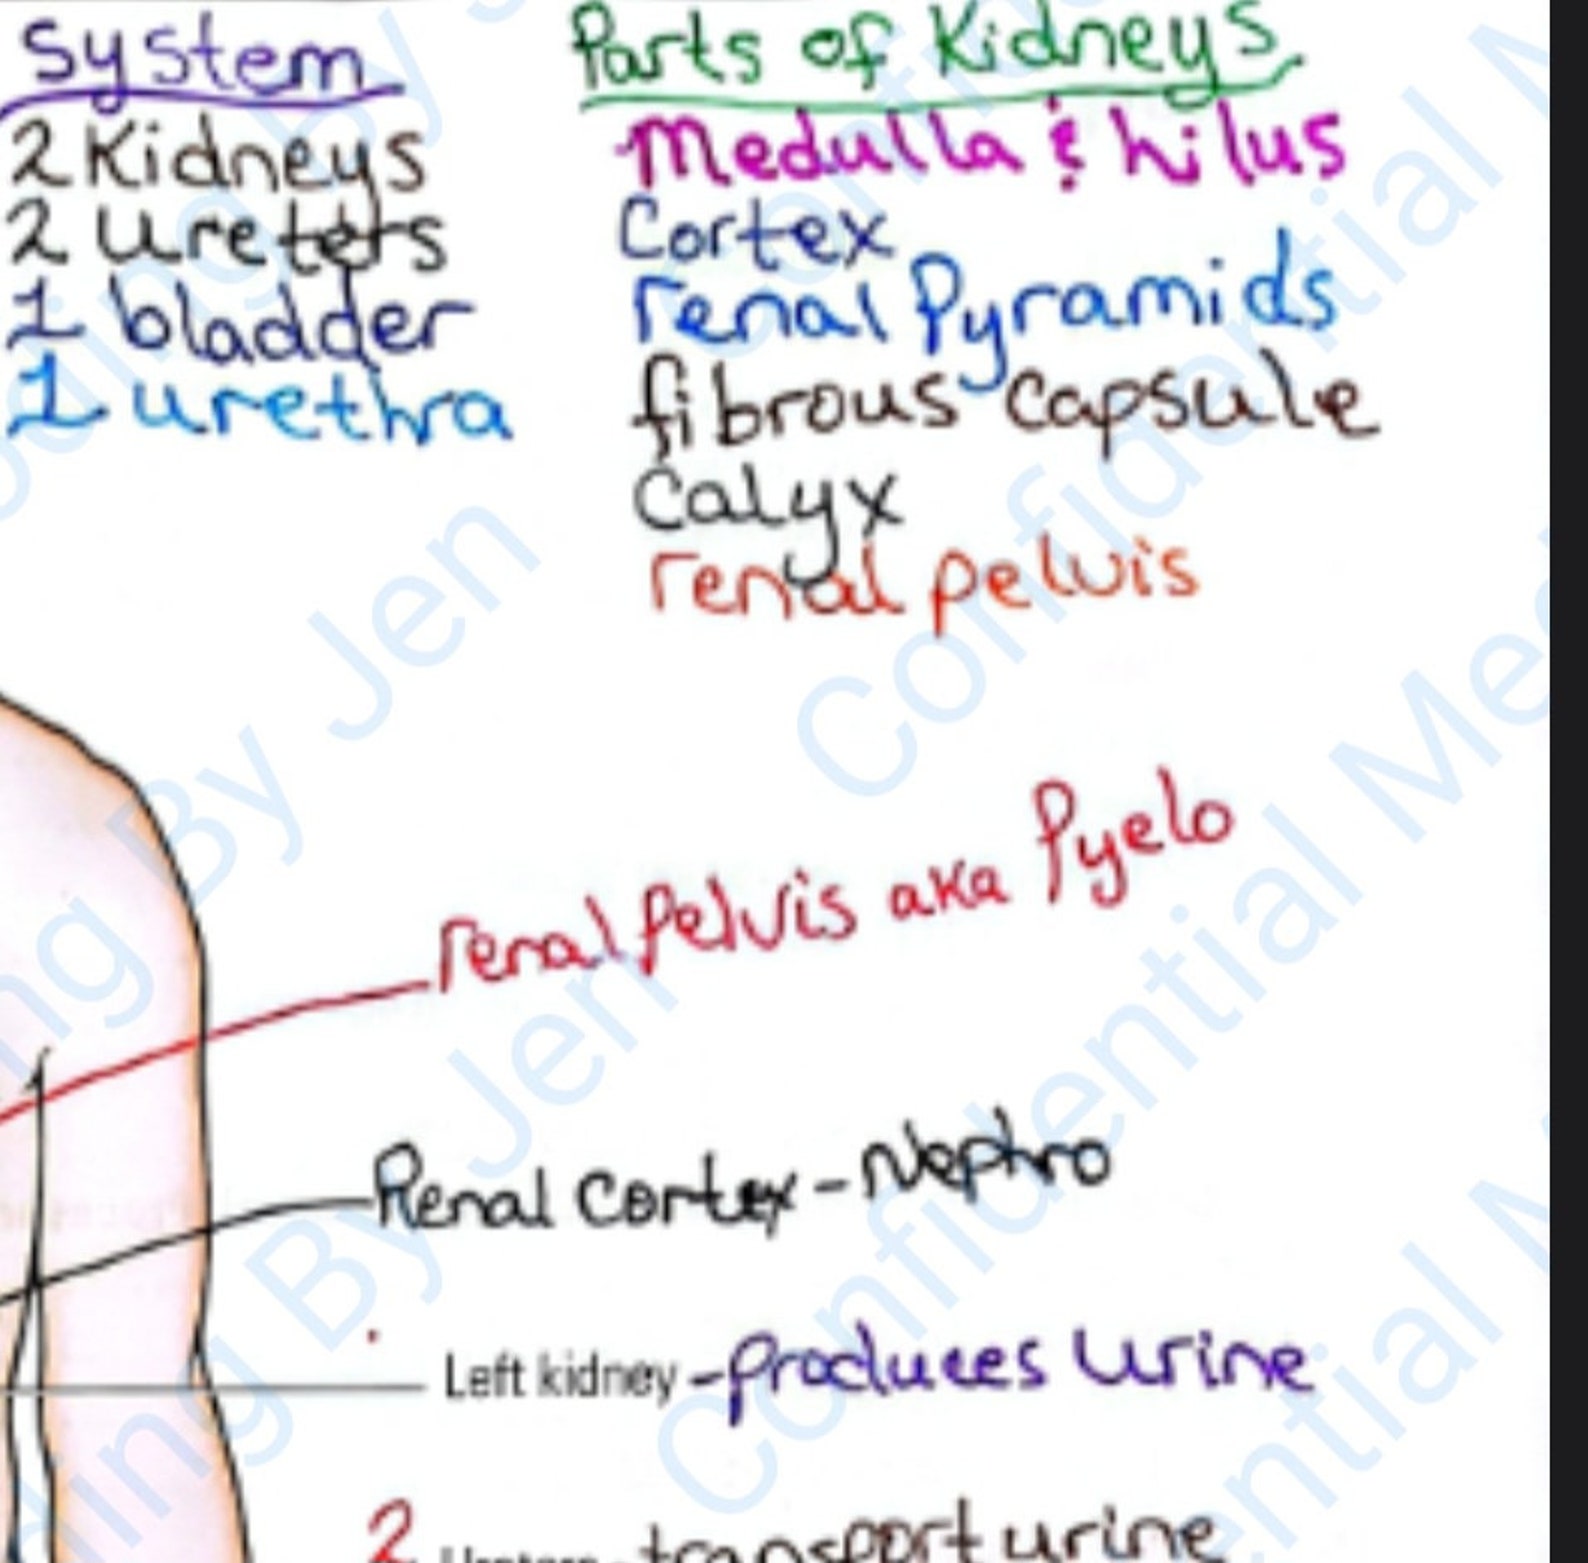 System
2 Kidneys
2 ureters
1 bladder
1 urethra
Parts of Kidneys
Medulla & hilus
Cortex
renal Pyramids
fibrous capsule
Calyx
renal pelvis
renal Pelvis aka Pyelo
Renal Cortex - Nephro
Left kidney - produces urine
2 - transport urine
By Jen
Confidential
By Jen
Confidential
By Jen
Confidential